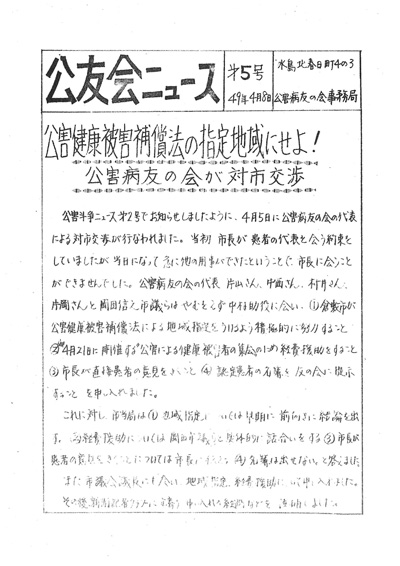 公友会ニュース
第5号
49年4月8日
水島北春日町4の3
公害病友の会事務局
公害健康被害補償法の指定地域にせよ！
公害病友の会が対市交渉
公害斗争ニュース第2号でお知らせしましたように、4月5日に公害病友の会の代表
による対市交渉が行なわれました。当初 市長が患者の代表と会う約束を
していましたが当日になって急に他の用事ができたということで市長に会うこと
ができませんでした。公害病友の会の代表 片山さん、中西さん、村井さん、
片岡さんと岡田信之市議らはやむをえず中村助役に会い、(1)倉敷市が
公害健康被害補償法による地域指定をうけるよう積極的に努力すること
(2)4月21日に開催する"公害による健康被害者の集会のため経費援助をすること
(3)市長が直接患者の意見をきくこと (4)認定患者の名簿を友の会に提示
すること を申し入れました。
これに対し、市当局は(1)地域指定については早期に前向きに結論を出
す、(2)経費援助については岡田市議と具体的に話合いをする(3)市長が
患者の意見をきくことについては市長に (4)名簿は出せない。と答えました
また市議会議長にも会い 地域指定、経費援助について申し入れました。
その後、新聞記者クラブに 申し入れの をしました。